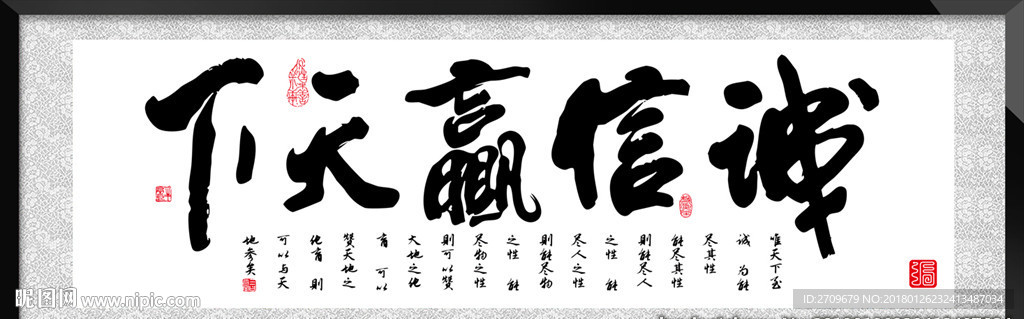 诚信赢天下
唯天下至
诚 为能
尽其性
能尽其性
则能尽人
之性 能
尽人之性
则能尽物
之性 能
尽物之性
则可以赞
天地之化
育 可以
赞天地之
化育 则
可以与天
地参矣
昵图网 www.nipic.com
ID:2709679 NO:20180126232413487034